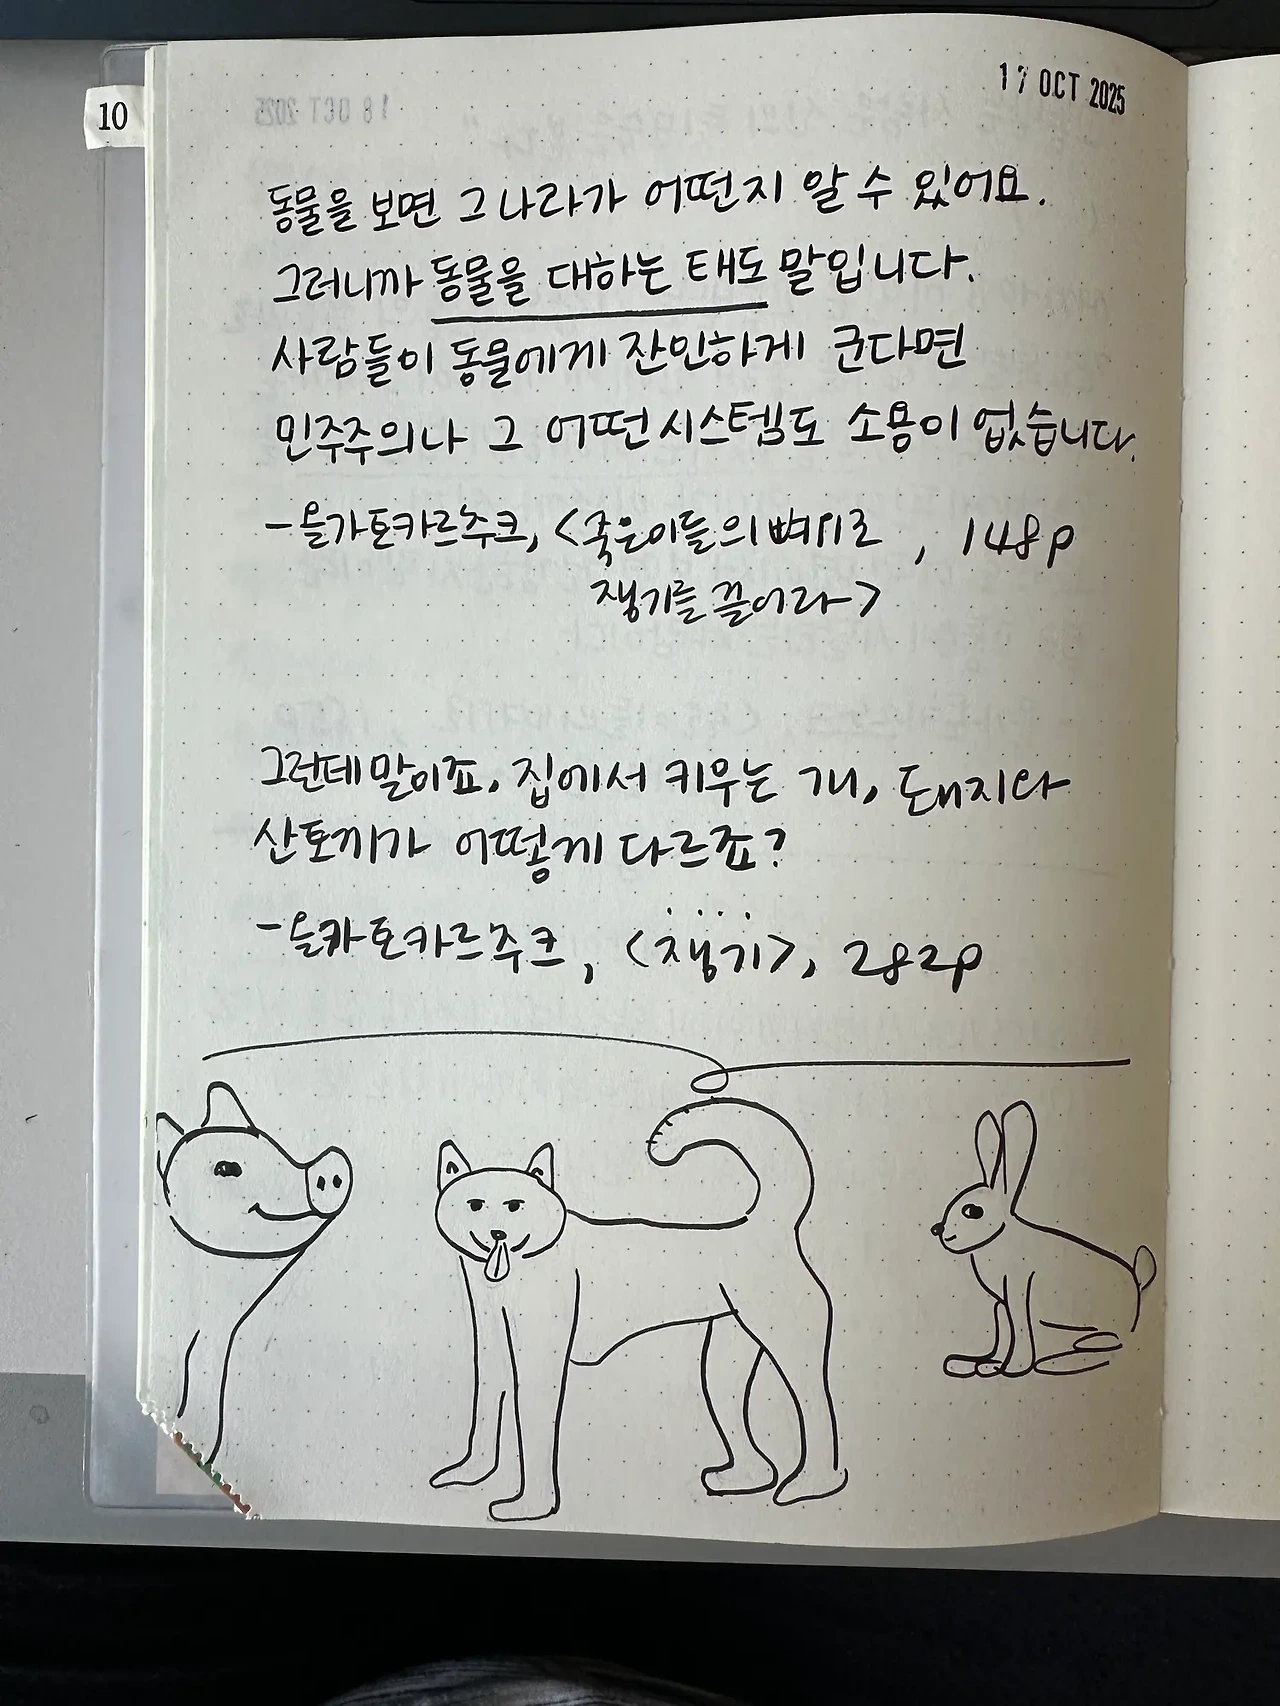 10
17 OCT 2025
동물을 보면 그 나라가 어떤지 알 수 있어요.
그러니까 동물을 대하는 태도 말입니다.
사람들이 동물에게 잔인하게 군다면
민주주의나 그 어떤 시스템도 소용이 없습니다.
- 올가 토카르추크, <죽은 이들의 뼈 위로, 148p
쟁기를 끌어라>
그런데 말이죠, 집에서 키우는 개, 돼지와
산토끼가 어떻게 다르죠?
- 올카 토카르추크, <쟁기>, 282p